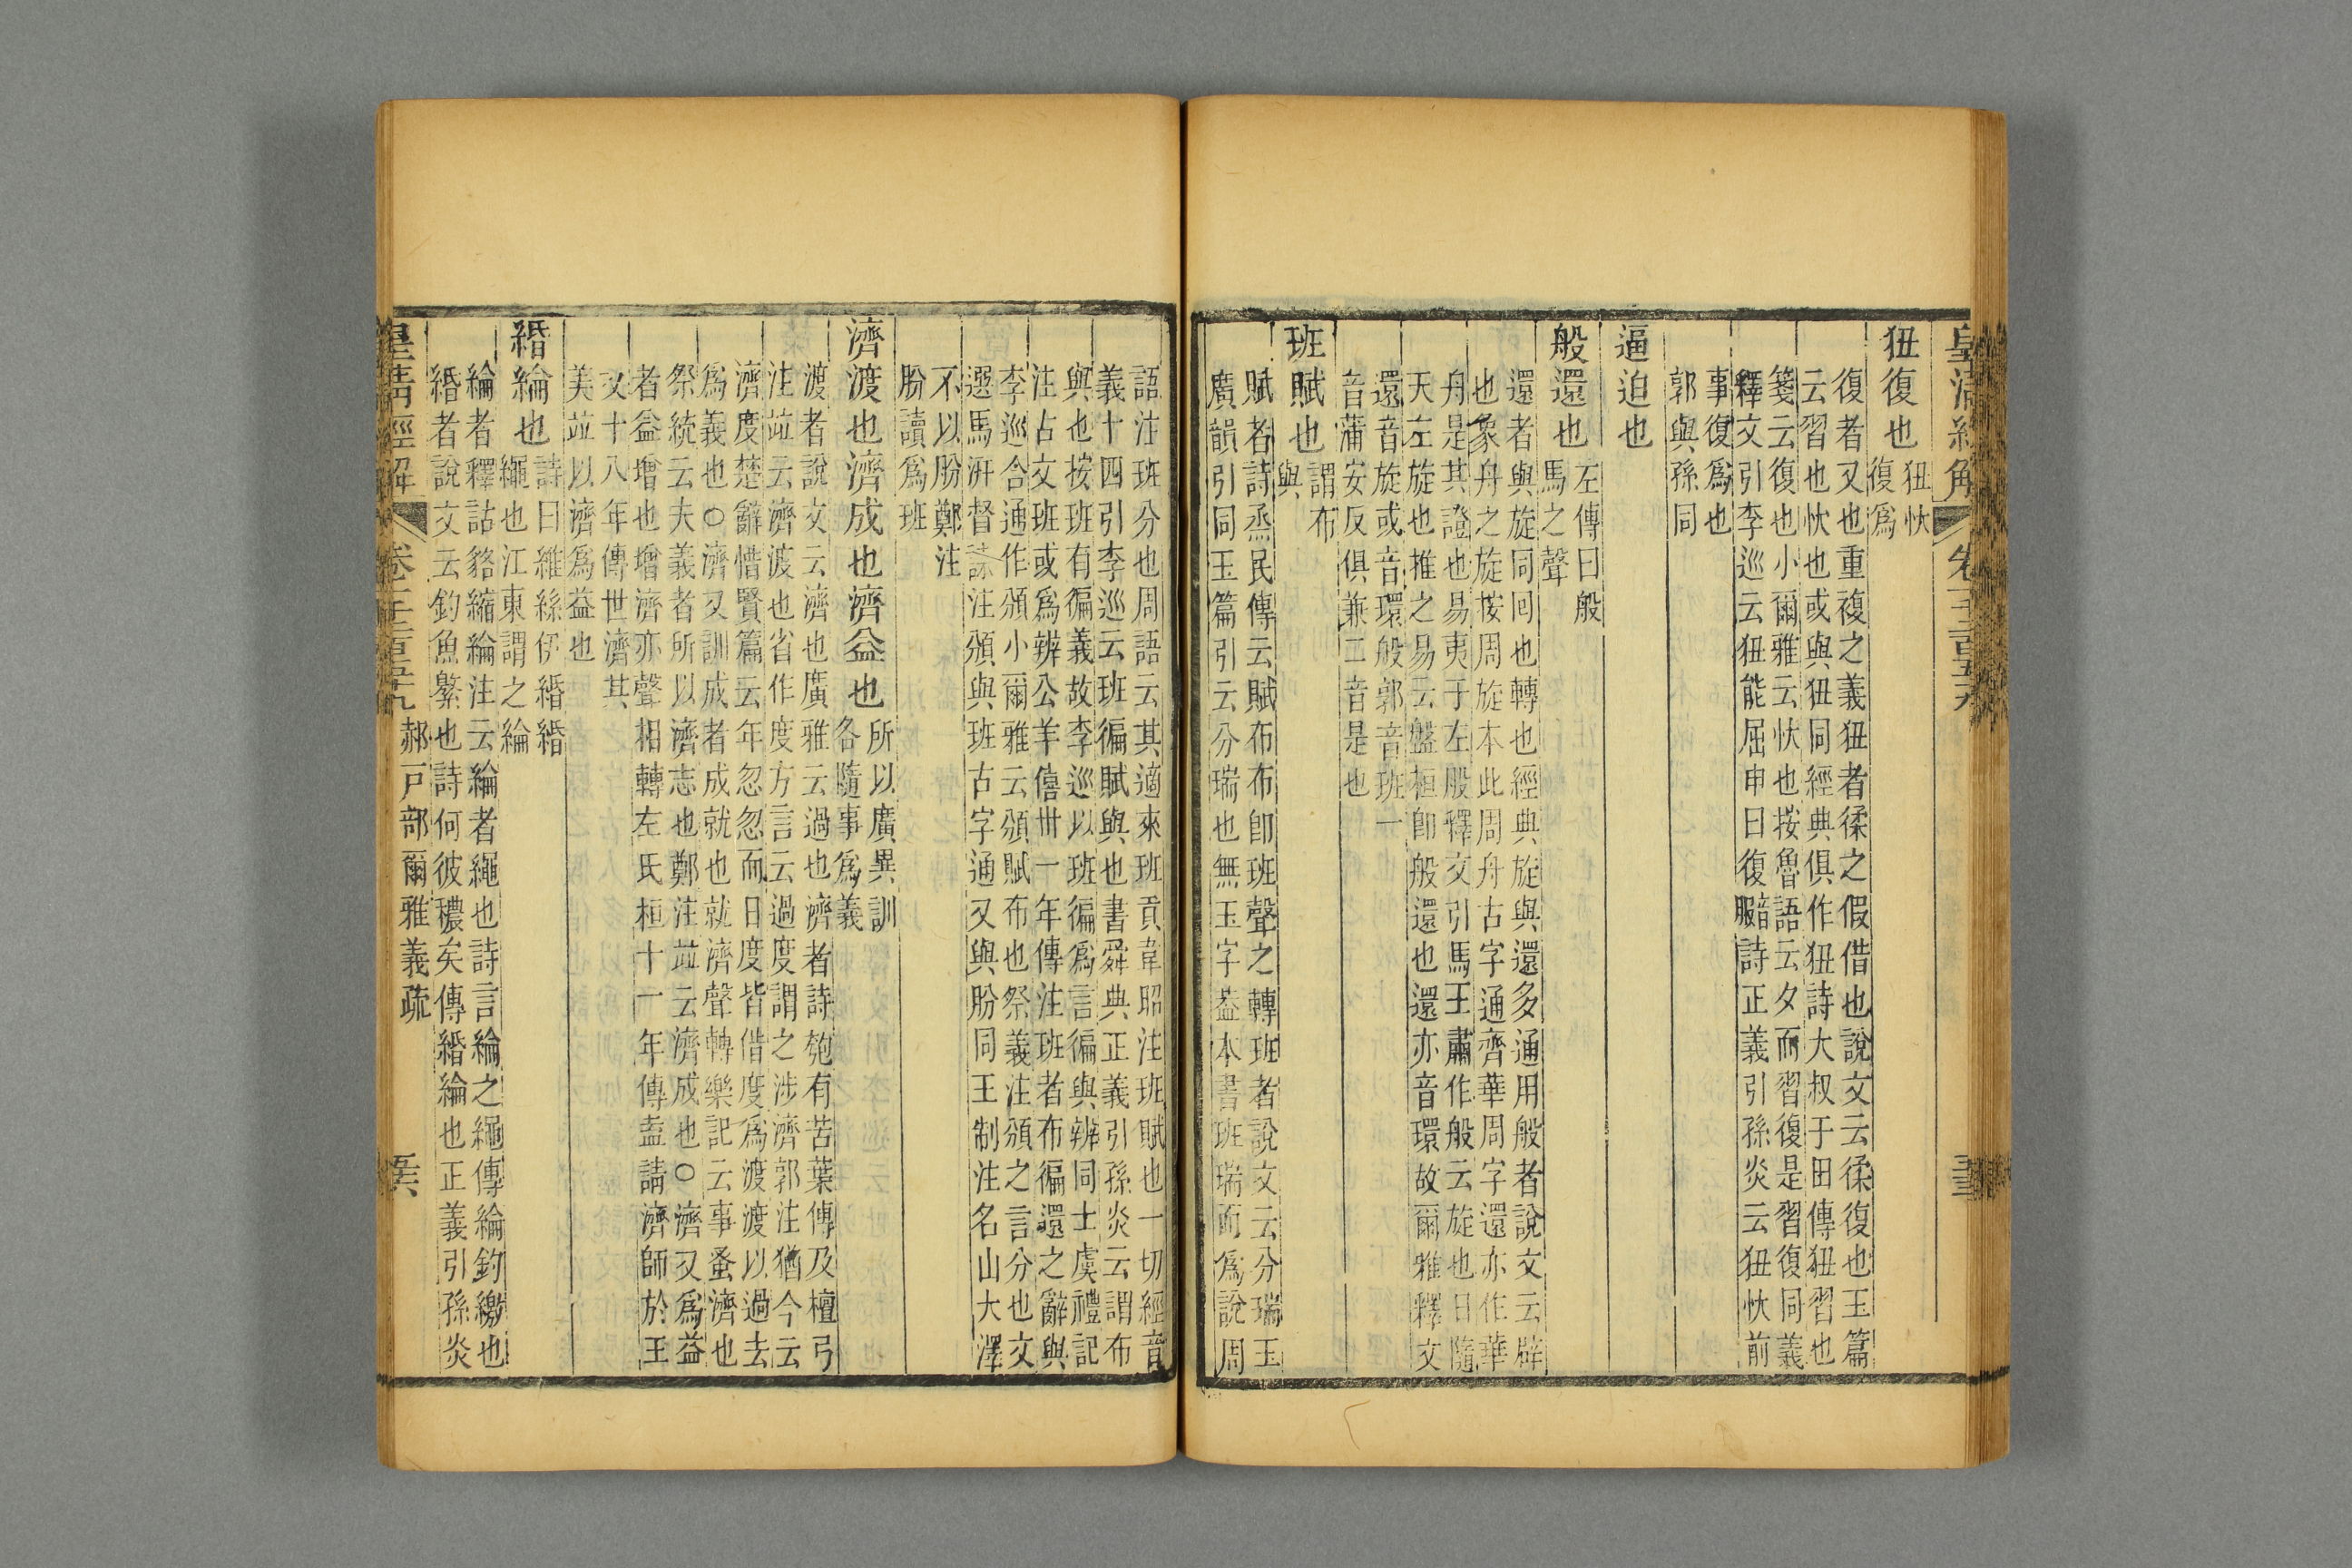 狃復也
狃忕
復爲
復者又也重複之義狃者徍之假借也說文云徍復也玉篇
云習也忕也或與狃同經典俱作狃詩大叔于田傳狃習也
箋云復也小爾雅云忕也按魯語云夕而習復是習復同義
釋文引李巡云狃能屈申曰復詩正義引孫炎云狃忕前
事復爲也
郭與孫同
逼迫也
般還也
左傳曰般
馬之聲
還者與旋同回也轉也經典旋與還多通用般者說文云辟
也象舟之旋按周旋本此周舟古字通齊華周字還亦作華
舟是其證也易夷于左股釋文引馬王肅作般云旋也日隨
天左旋也推之易云盤桓卽般還也還亦音環故爾雅釋文
還音旋或音環般郭音班一
音蒲安反俱兼二音是也
班賦也
謂布
與
賦者詩烝民傳云賦布布卽班聲之轉班者說文云分瑞玉
廣韻引同玉篇引云分瑞也無玉字葢本書班瑞而爲說周
語注班分也周語云其適來班貢韋昭注班賦也一切經音
義十四引李巡云班徧賦與也書舜典正義引孫炎云謂布
與也按班有徧義故李巡以班徧爲言徧與辨同士虞禮記
注古文班或爲辨公羊僖卅一年傳注班者布徧還之辭與
李巡合通作頒小爾雅云頒賦布也祭義注頒之言分也文
選馬汧督誄注頒與班古字通又與朌同王制注名山大澤
不以朌鄭注
朌讀爲班
濟渡也濟成也濟益也
所以廣異訓
各隨事爲義
渡者說文云濟也廣雅云過也濟者詩匏有苦葉傳及檀弓
注竝云濟渡也省作度方言云過度謂之涉濟郭注猶今云
濟度楚辭惜賢篇云年忽忽而日度皆借度爲渡渡以過去
爲義也○濟又訓成者成就也就濟聲轉樂記云事蚤濟也
祭統云夫義者所以濟志也鄭注竝云濟成也○濟又爲益
者益增也增濟亦聲相轉左氏桓十一年傳盍請濟師於王
文十八年傳世濟其
美竝以濟爲益也
緡綸也
詩曰維絲伊緡緡
繩也江東謂之綸
綸者釋詁貉縮綸注云綸者繩也詩言綸之繩傳綸釣繳也
緡者說文云釣魚繁也詩何彼襛矣傳緡綸也正義引孫炎
皇清經解
郝戶部爾雅義疏